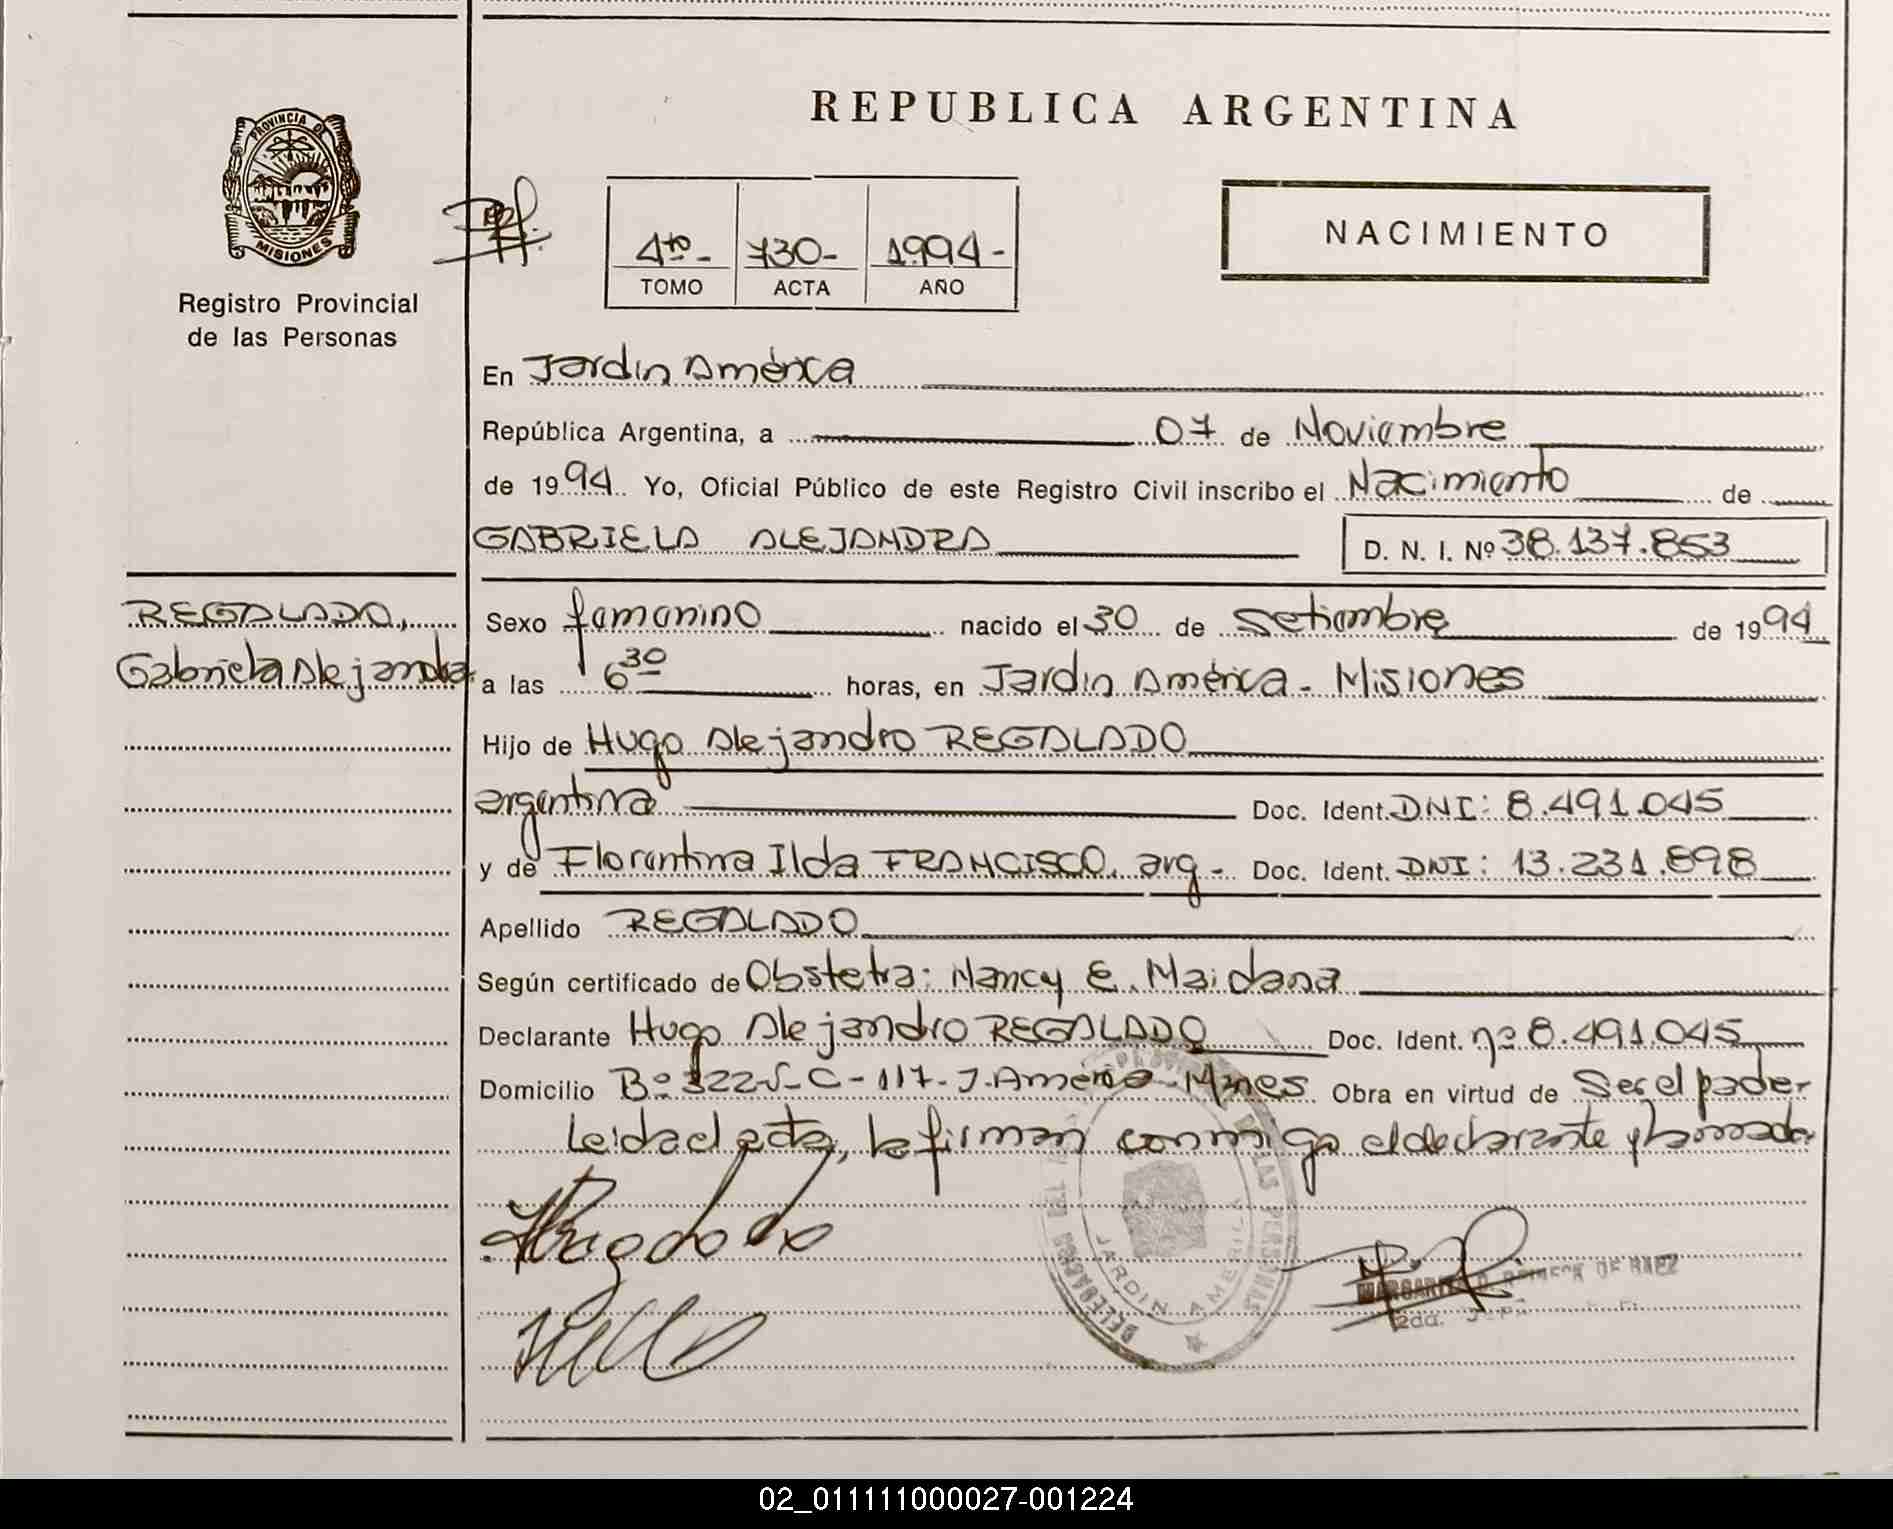 REPUBLICA ARGENTINA
PROVINCIA DE
MISIONES
Registro Provincial
de las Personas
4to - 730- 1994-
TOMO ACTA AÑO
NACIMIENTO
En Jardin América
República Argentina, a 07 de Noviembre
de 1994 Yo, Oficial Público de este Registro Civil inscribo el Nacimiento de
GABRIELA ALEJANDRA D. N. I. Nº 38.137.853
REGALADO,
Gabriela Alejandra
Sexo femenino nacido el 30 de Setiembre de 1994
a las 6 30 horas, en Jardin América - Misiones
Hijo de Hugo Alejandro REGALADO
argentina Doc. Ident. DNI: 8.491.045
y de Florentina Ilda FRANCISCO, arg - Doc. Ident. DNI: 13.231.898
Apellido REGALADO
Según certificado de Obstetra: Nancy E. Maidana
Declarante Hugo Alejandro REGALADO Doc. Ident. nº 8.491.045
Domicilio Bº 322 - C - 117 - J. América - Mnes Obra en virtud de Ser el padre
Leida el acta, la firman conmigo el declarante y
JARDIN AMERICA
DE LAS PERSONAS
02_011111000027-001224